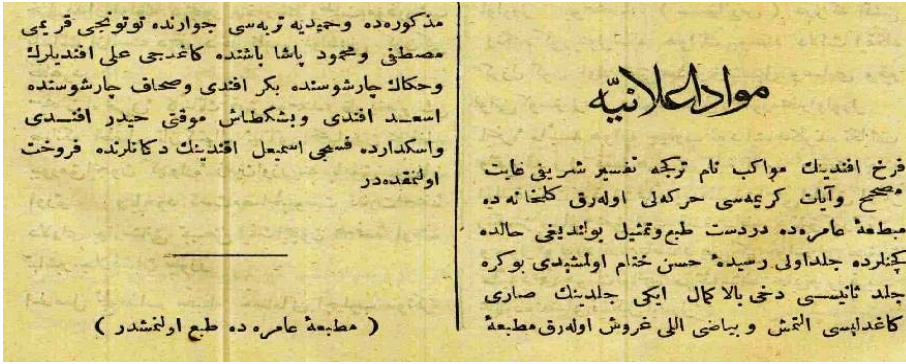 مواد اعلانیه
فرخ افندینك مواكب نام ترجمه تفسیر شریفی غایت
مصحح وآیات كریمه‌سی حركه‌لی اوله‌رق كلخانه ده
مطبعهٔ عامره‌ده دردست طبع وتمثیل بولندیغی حالده
كچنلرده جلد اولی رسیدهٔ حسن ختام اولمشیدی بوكره
جلد ثانیسی دخی بالاكمال ایكی جلدینك صاری
كاغدلیسی التمش و بیاضی اللی غروش اوله‌رق مطبعهٔ
مذكوره‌ده وحمیدیه تربه‌سی جوارنده توتونجی قریمی
مصطفی ومحمود پاشا باشنده كاغدجی علی افندیلرك
وحكاك چارشوسنده بكر افندی وصحاف چارشوسنده
اسعد افندی وبشكطاش موقتی حیدر افندی
واسكدارده قسمجی اسمیعل افندینك دكانلرنده فروخت
اولنمقده‌در
( مطبعهٔ عامره ده طبع اولنمشدر )